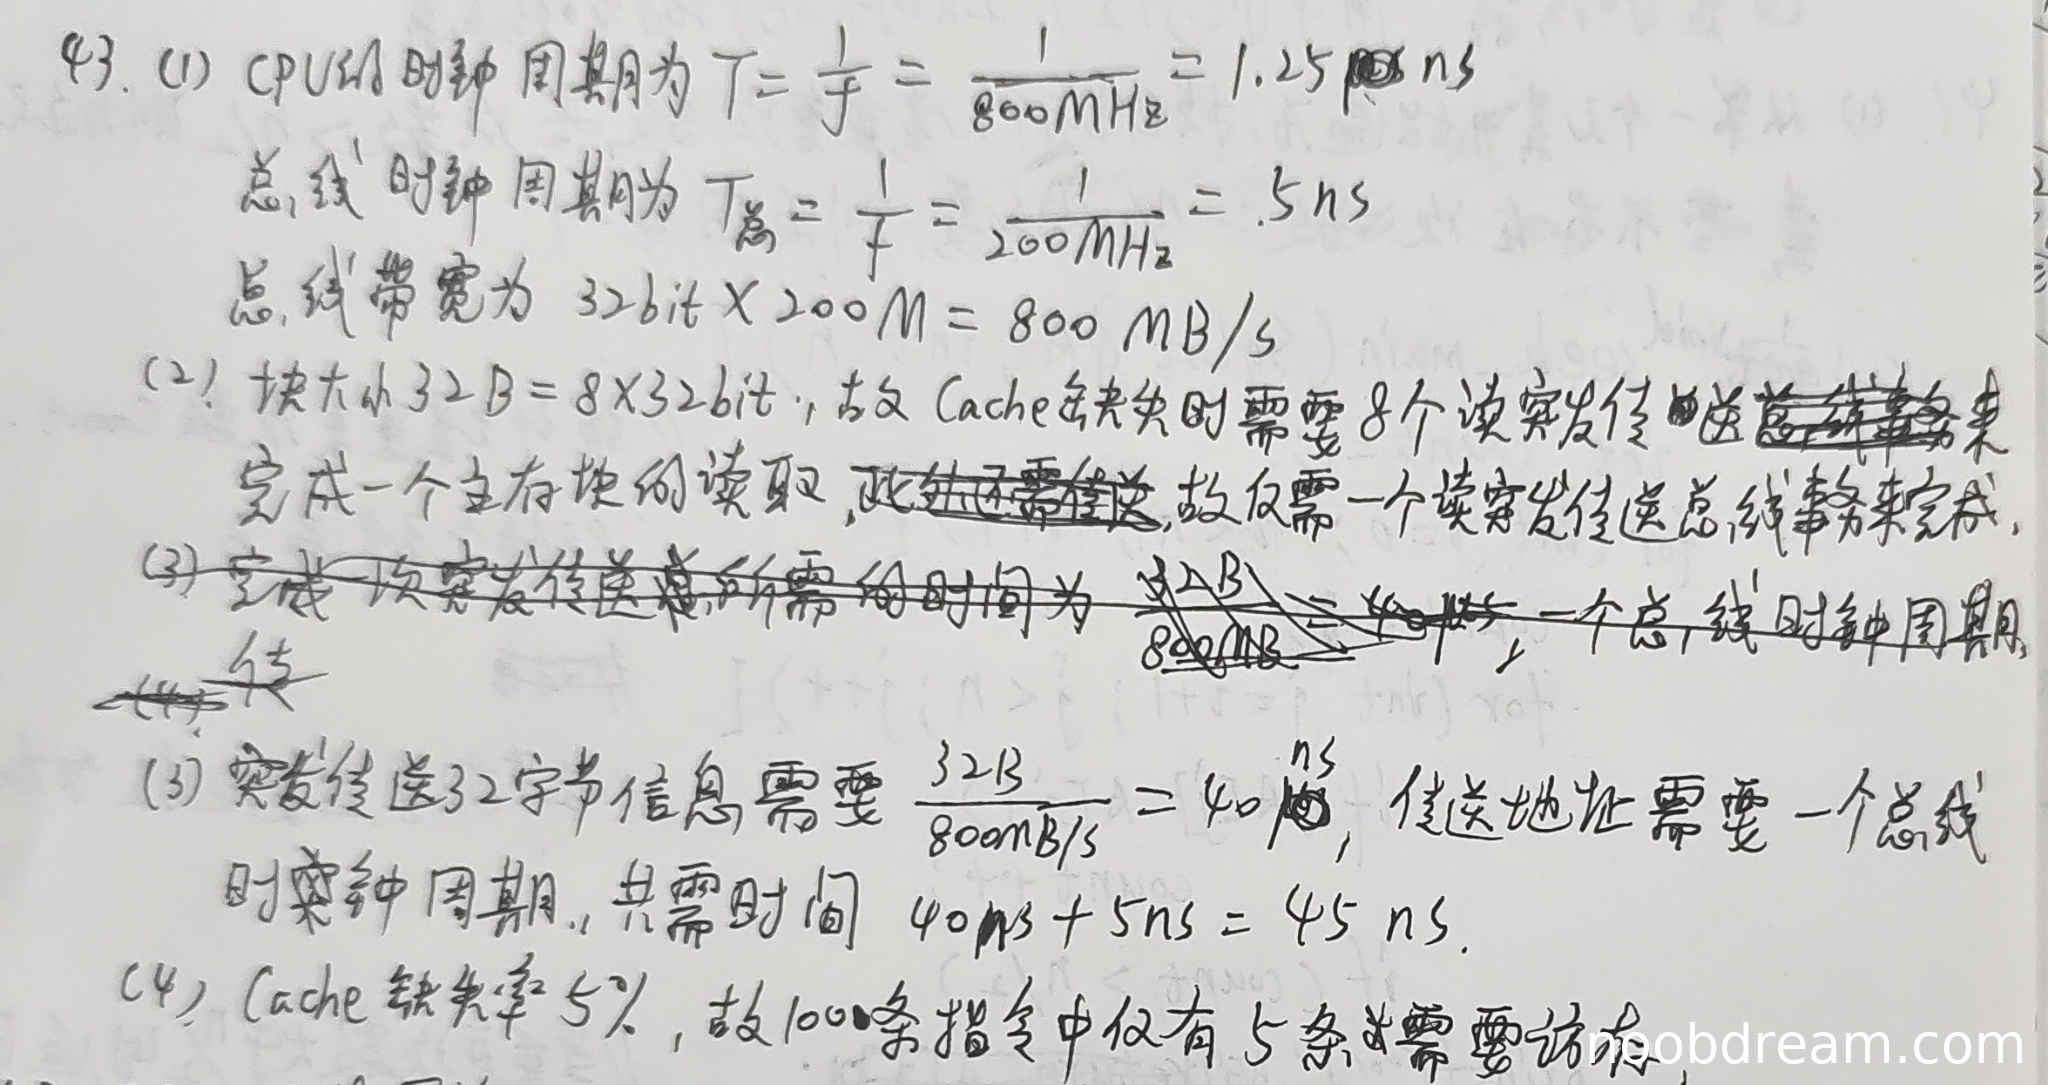 43. (1) CPU的时钟周期为 T = 1/f = 1/800MHz = 1.25 ns
总线时钟周期为 T总 = 1/f = 1/200MHz = 5ns
总线带宽为 32bit × 200M = 800 MB/s
(2) 块大小32B = 8×32bit, 故Cache缺失时需要8个读突发传送总线事务来
完成一个主存块的读取, 故仅需一个读突发传送总线事务来完成.
(3) 完成一次突发传送总所需的时间为 32B/800MB = 40 一个总线时钟周期,
(4) 传
(3) 突发传送32字节信息需要 32B/800MB/s = 40 ns, 传送地址需要一个总线
时钟周期, 共需时间 40ns + 5ns = 45 ns.
(4) Cache缺失率5%, 故100条指令中仅有5条需要访存,
noobdream.com